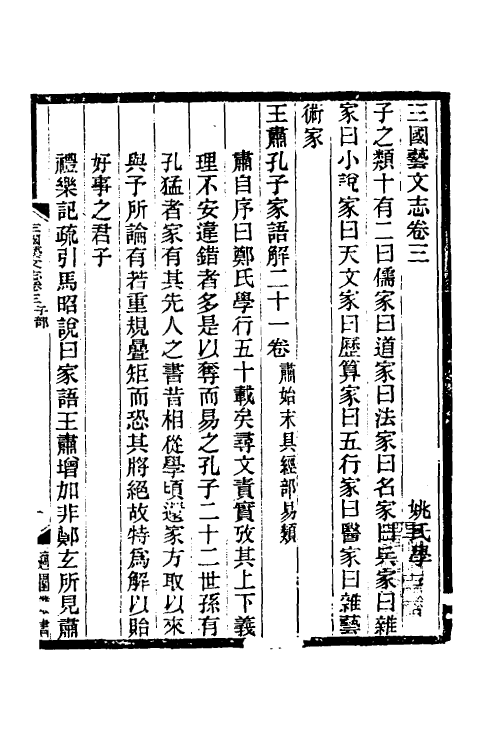 三國藝文志卷三
姚氏學
子之類十有二曰儒家曰道家曰法家曰名家曰兵家曰雜
家曰小說家曰天文家曰歷算家曰五行家曰醫家曰雜藝
術家
王肅孔子家語解二十一卷 肅始末具經部易類
肅自序曰鄭氏學行五十載矣尋文責實攷其上下義
理不安違錯者多是以奪而易之孔子二十二世孫有
孔猛者家有其先人之書昔相從學頃還家方取以來
與予所論有若重規疊矩而恐其將絕故特爲解以貽
好事之君子
禮樂記疏引馬昭說曰家語王肅增加非鄭玄所見肅
三國藝文志卷三子部
適園叢書